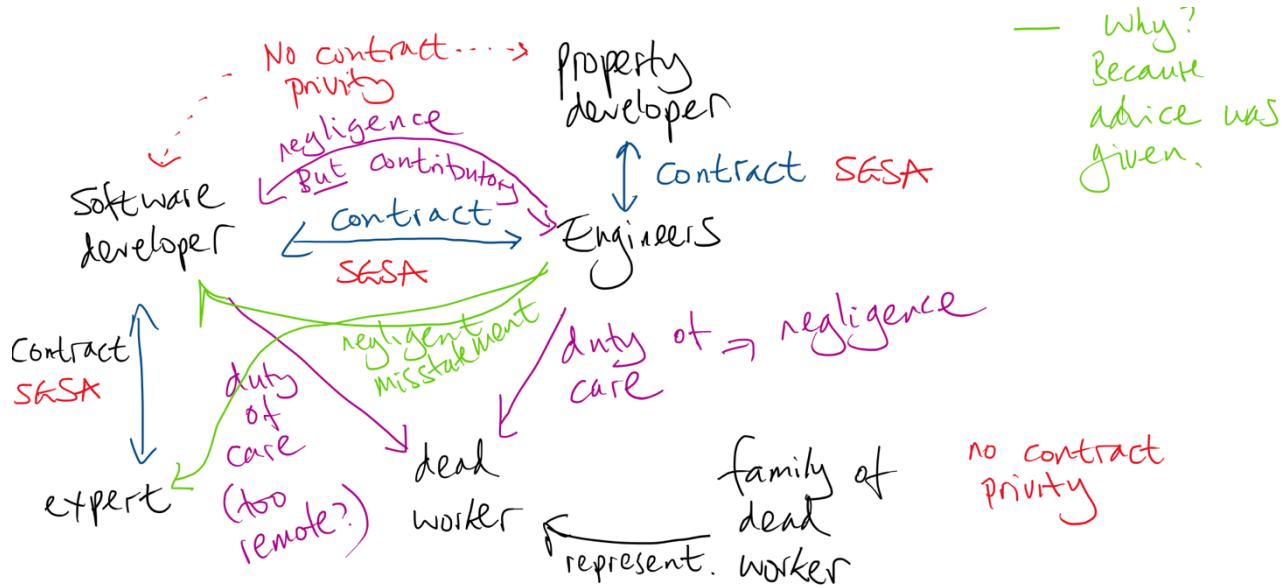 No contract
privity
Property
developer
— Why?
Because
advice was
given.
negligence
But contributory
contract SGSA
Software
developer
contract
SGSA
Engineers
contract
SGSA
negligent
misstatement
duty of → negligence
care
duty
of
care
(too
remote?)
expert
dead
worker
represent.
family of
dead
worker
no contract
privity